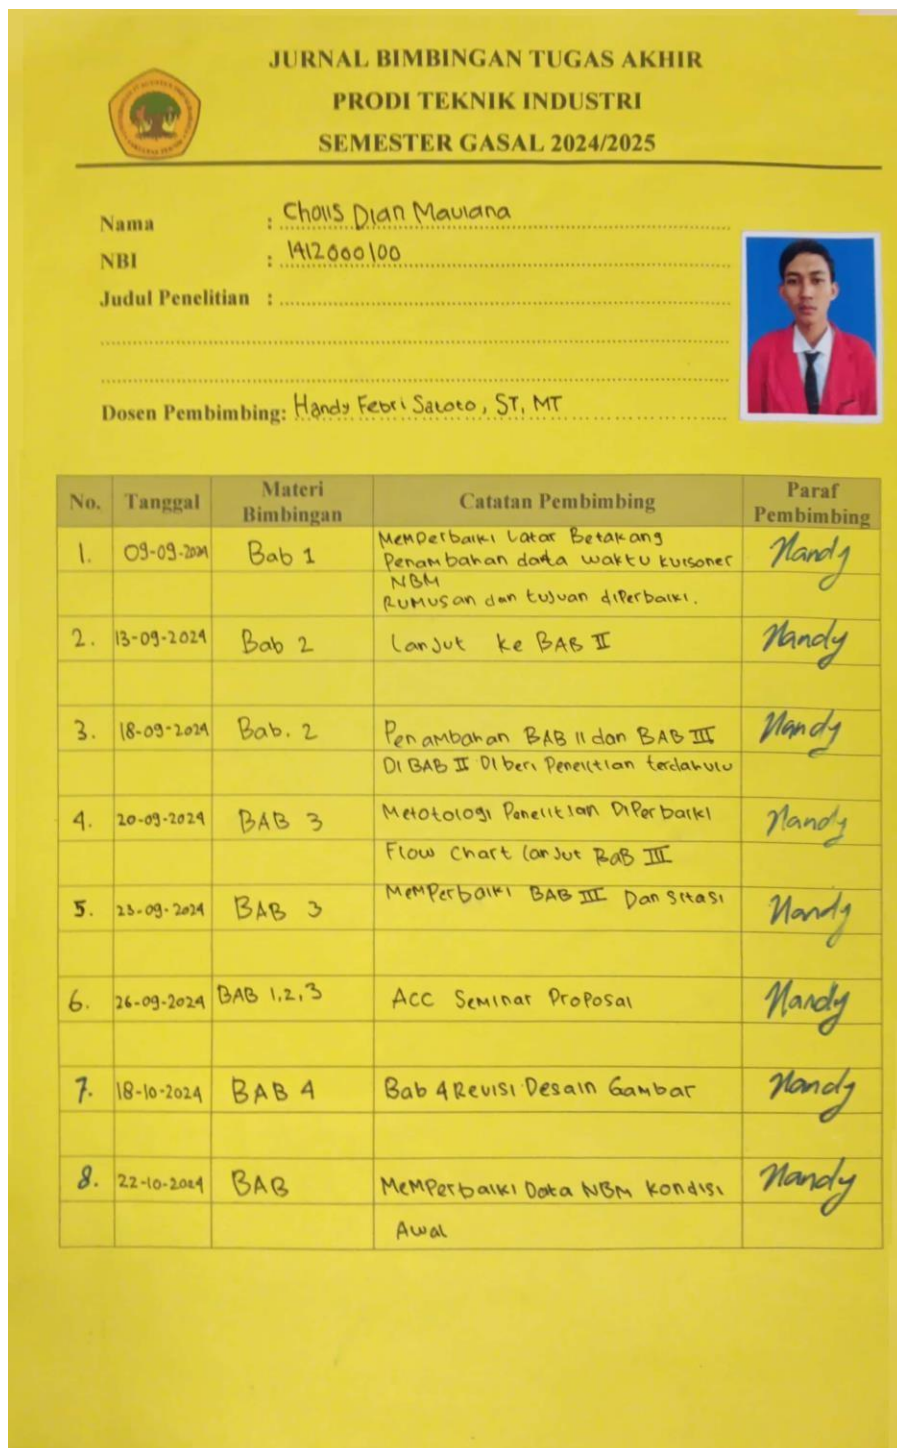 JURNAL BIMBINGAN TUGAS AKHIR
PRODI TEKNIK INDUSTRI
SEMESTER GASAL 2024/2025
Nama : Cholis Dian Maulana
NBI : 1412000100
Judul Penelitian :
Dosen Pembimbing: Handy Febri Satoto, ST, MT
No. Tanggal Materi Bimbingan Catatan Pembimbing Paraf Pembimbing
1. 09-09-2024 Bab 1 Memperbaiki Latar Betakang Handy
Penambahan data waktu kuisoner
NBM
Rumusan dan tujuan diperbaiki.
2. 13-09-2024 Bab 2 Lanjut ke BAB II Handy
3. 18-09-2024 Bab. 2 Penambahan BAB II dan BAB III Handy
Di BAB II Diberi Penelitian terdahulu
4. 20-09-2024 BAB 3 Metotologi Penelitian Diperbaiki Handy
Flow Chart lanjut BaB III
5. 23-09-2024 BAB 3 Memperbaiki BAB III Dan Sitasi Handy
6. 26-09-2024 BAB 1,2,3 ACC Seminar Proposal Handy
7. 18-10-2024 BAB 4 Bab 4 Revisi Desain Gambar Handy
8. 22-10-2024 BAB Memperbaiki Data NBM kondisi Handy
Awal